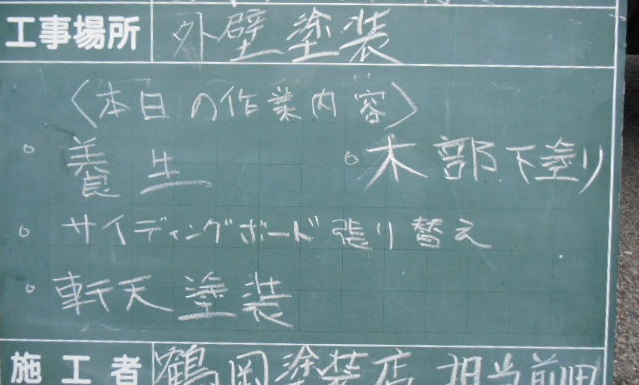 工事場所 外壁塗装
〈本日の作業内容〉
○養生 ○木部下塗り
○サイディングボード張り替え
○軒天塗装
施工者 鶴岡塗装店 担当前田